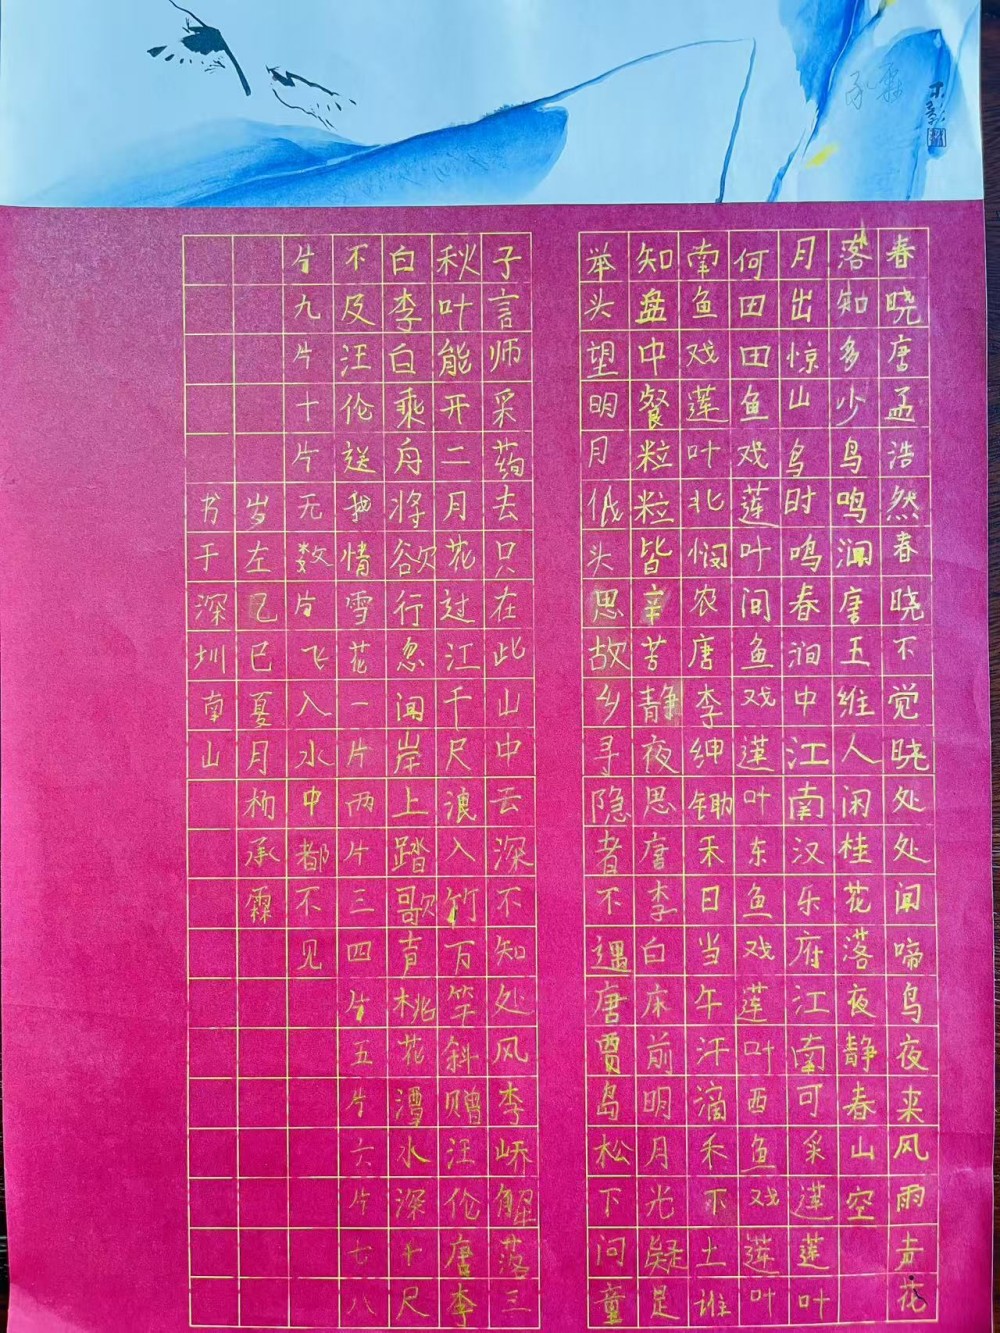 春晓唐孟浩然春晓不觉晓处处闻啼鸟夜来风雨声花
落知多少鸟鸣涧唐王维人闲桂花落夜静春山空
月出惊山鸟时鸣春涧中江南汉乐府江南可采莲莲叶
何田田鱼戏莲叶间鱼戏莲叶东鱼戏莲叶西鱼戏莲叶
南鱼戏莲叶北悯农唐李绅锄禾日当午汗滴禾下土谁
知盘中餐粒粒皆辛苦静夜思唐李白床前明月光疑是
举头望明月低头思故乡寻隐者不遇唐贾岛松下问童
子言师采药去只在此山中云深不知处风李峤解落三
秋叶能开二月花过江千尺浪入竹万竿斜赠汪伦唐李
白李白乘舟将欲行忽闻岸上踏歌声桃花潭水深千尺
不及汪伦送我情雪花一片两片三四片五片六片七八
片九片十片无数片飞入水中都不见
岁左乙巳夏月杨承霖
书于深圳南山